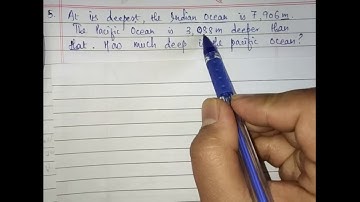 5. At its deepest, the Indian Ocean is 7,906 m.
The Pacific Ocean is 3,088 m deeper than
that. How much deep is the pacific ocean?